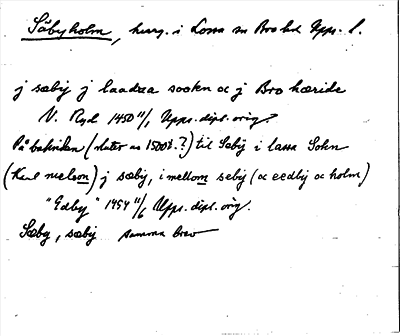 Säbyholm, herrg. i Lossa sn Bro hd Upps. l.
j sæbij j laadza sookn oc j Bro hæride
N. Ryd 1450 11/1 Upps. dipl. orig
På baksidan (slutet av 1500t.?) til Säby i lassa Sokn
(Karl nielson) j sæby, i mellom sebij (oc eedbij oc holm)
"Edby" 1454 11/6 Upps. dipl. orig.
Sæby, sæbij samma brev